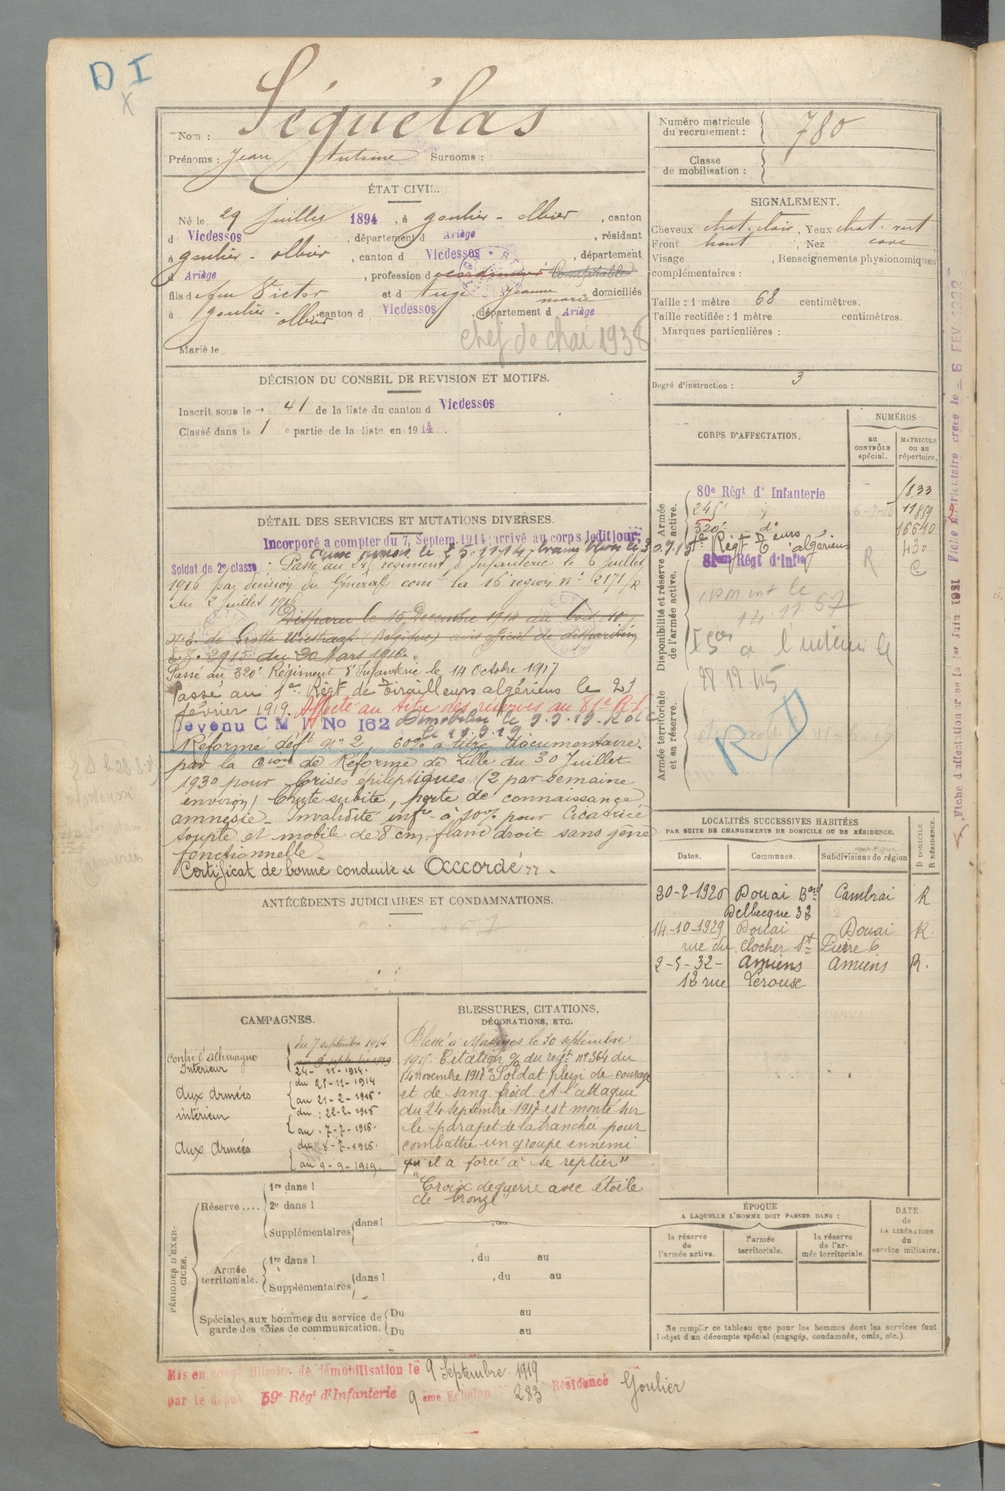 D I
X
Nom : Séquélas
Prénoms : Jean Antoine Surnoms :
Numéro matricule du recrutement : 780
Classe de mobilisation :
ÉTAT CIVIL.
Né le 29 Juillet 1894, à Goulier-Olbier, canton
d Vicdessos, département d Ariège, résidant
à Goulier-Olbier, canton d Vicdessos, département
d Ariège, profession d cordonnier Comptable
fils d feu Victor et d Augé Jeanne Marie, domiciliés
à Goulier-Olbier canton d Vicdessos, département d Ariège
chef de chai 1938
Marié le
SIGNALEMENT.
Cheveux chat. clair, Yeux chat. vert
Front haut, Nez cave
Visage , Renseignements physionomiques
complémentaires :
Taille : 1 mètre 68 centimètres.
Taille rectifiée : 1 mètre centimètres.
Marques particulières :
Degré d'instruction : 3
DÉCISION DU CONSEIL DE REVISION ET MOTIFS.
Inscrit sous le n° 41 de la liste du canton d Vicdessos
Classé dans la 1 e partie de la liste en 1914
DÉTAIL DES SERVICES ET MUTATIONS DIVERSES.
Incorporé à compter du 7 Septem. 1914: arrivé au corps ledit jour.
Soldat de 2e classe Passé au régiment d'Infanterie le 6 juillet
1916 par décision du Général com. la 16e région n° 6217/R
du 2 juillet 1916
Disparu le 15 Décembre 1914 au
de (Belgique) avis officiel de disparition
du 20 Mars 1916.
Passé au 320e Régiment d'Infanterie le 14 Octobre 1917
Passé au 1er Régt de Tirailleurs algériens le 21
février 1919. Affecté au titre des réserves au 81e R.I.
devenu C M I No 162 Démobilisé le 9.9.19.
Réformé déft n° 2, 60% à titre documentaire.
par la Cion de Réforme de Lille du 30 Juillet
1930 pour Crises épileptiques (2 par semaine
environ) Chute subite, perte de connaissance,
amnésie. Invalidité infre à 10% pour Cicatrice
souple et mobile de 8 cm. flanc droit sans gêne
fonctionnelle.
Certificat de bonne conduite « Accordé ».
ANTÉCÉDENTS JUDICIAIRES ET CONDAMNATIONS.
CORPS D'AFFECTATION.
NUMÉROS
au CONTRÔLE spécial.
MATRICULE ou au répertoire.
Disponibilité et réserve de l'armée active.
Armée active.
Armée territoriale et sa réserve.
80e Régt d' Infanterie 1833
11859
320e d° 16640
1er Régt Tirs algériens 430
81ème Régt d'Infie
R C
R D
Fiche d'affectation créée le 1er Juin 1931
LOCALITÉS SUCCESSIVES HABITÉES
PAR SUITE DE CHANGEMENTS DE DOMICILE OU DE RÉSIDENCE.
Dates. Communes. Subdivisions de région D DOMICILE. R RÉSIDENCE.
Douai Bard Cambrai R
Delbecque 32
14-10-1929 Douai Douai R
rue du Clocher St Pierre 6
2-5-32- Amiens Amiens R.
12 rue Lérouse
CAMPAGNES.
Contre l'Allemagne
Intérieur du 7 septembre 1914
24-11-1914.
Aux Armées du 25-11-1914
au 21-2-1915
intérieur du : 22-2-1915
au 7-7-1916.
Aux Armées du 8-7-1916.
au 9-9-1919.
BLESSURES, CITATIONS, DÉCORATIONS, ETC.
Blessé à le 30 septembre
Citation du régt n° 364 du
14 novembre 1917 "Soldat plein de courage
et de sang froid. A l'attaque
du 24 septembre 1917 est monté sur
le parapet de la tranchée pour
combattre un groupe ennemi
qu'il a forcé à se replier"
"Croix de guerre avec étoile
de bronze"
PÉRIODES D'EXERCICES.
Réserve....
1re dans l
2e dans l
Supplémentaires dans l
Armée territoriale.
1re dans l , du au
Supplémentaires dans l , du au
Spéciales aux hommes du service de garde des voies de communication. Du au
Du au
ÉPOQUE
A LAQUELLE L'HOMME DOIT PASSER DANS :
la réserve de l'armée active.
l'armée territoriale.
la réserve de l'armée territoriale.
DATE de LA LIBÉRATION du service militaire.
Ne remplir ce tableau que pour les hommes dont les services font
l'objet d'un décompte spécial (engagés, condamnés, omis, etc.).
Mis en congé illimité de démobilisation le 9 Septembre 1919
par le dépôt 59e Régt d'Infanterie 9 eme Echelon 283 Résidence Goulier